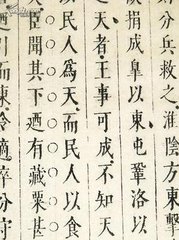 分兵救之淮陰方東擊
捐成臯以東屯鞏洛以
天者王事可成不知天
以民人爲天而民人以食
臣聞其下廼有藏粟甚
引而東令適卒分守